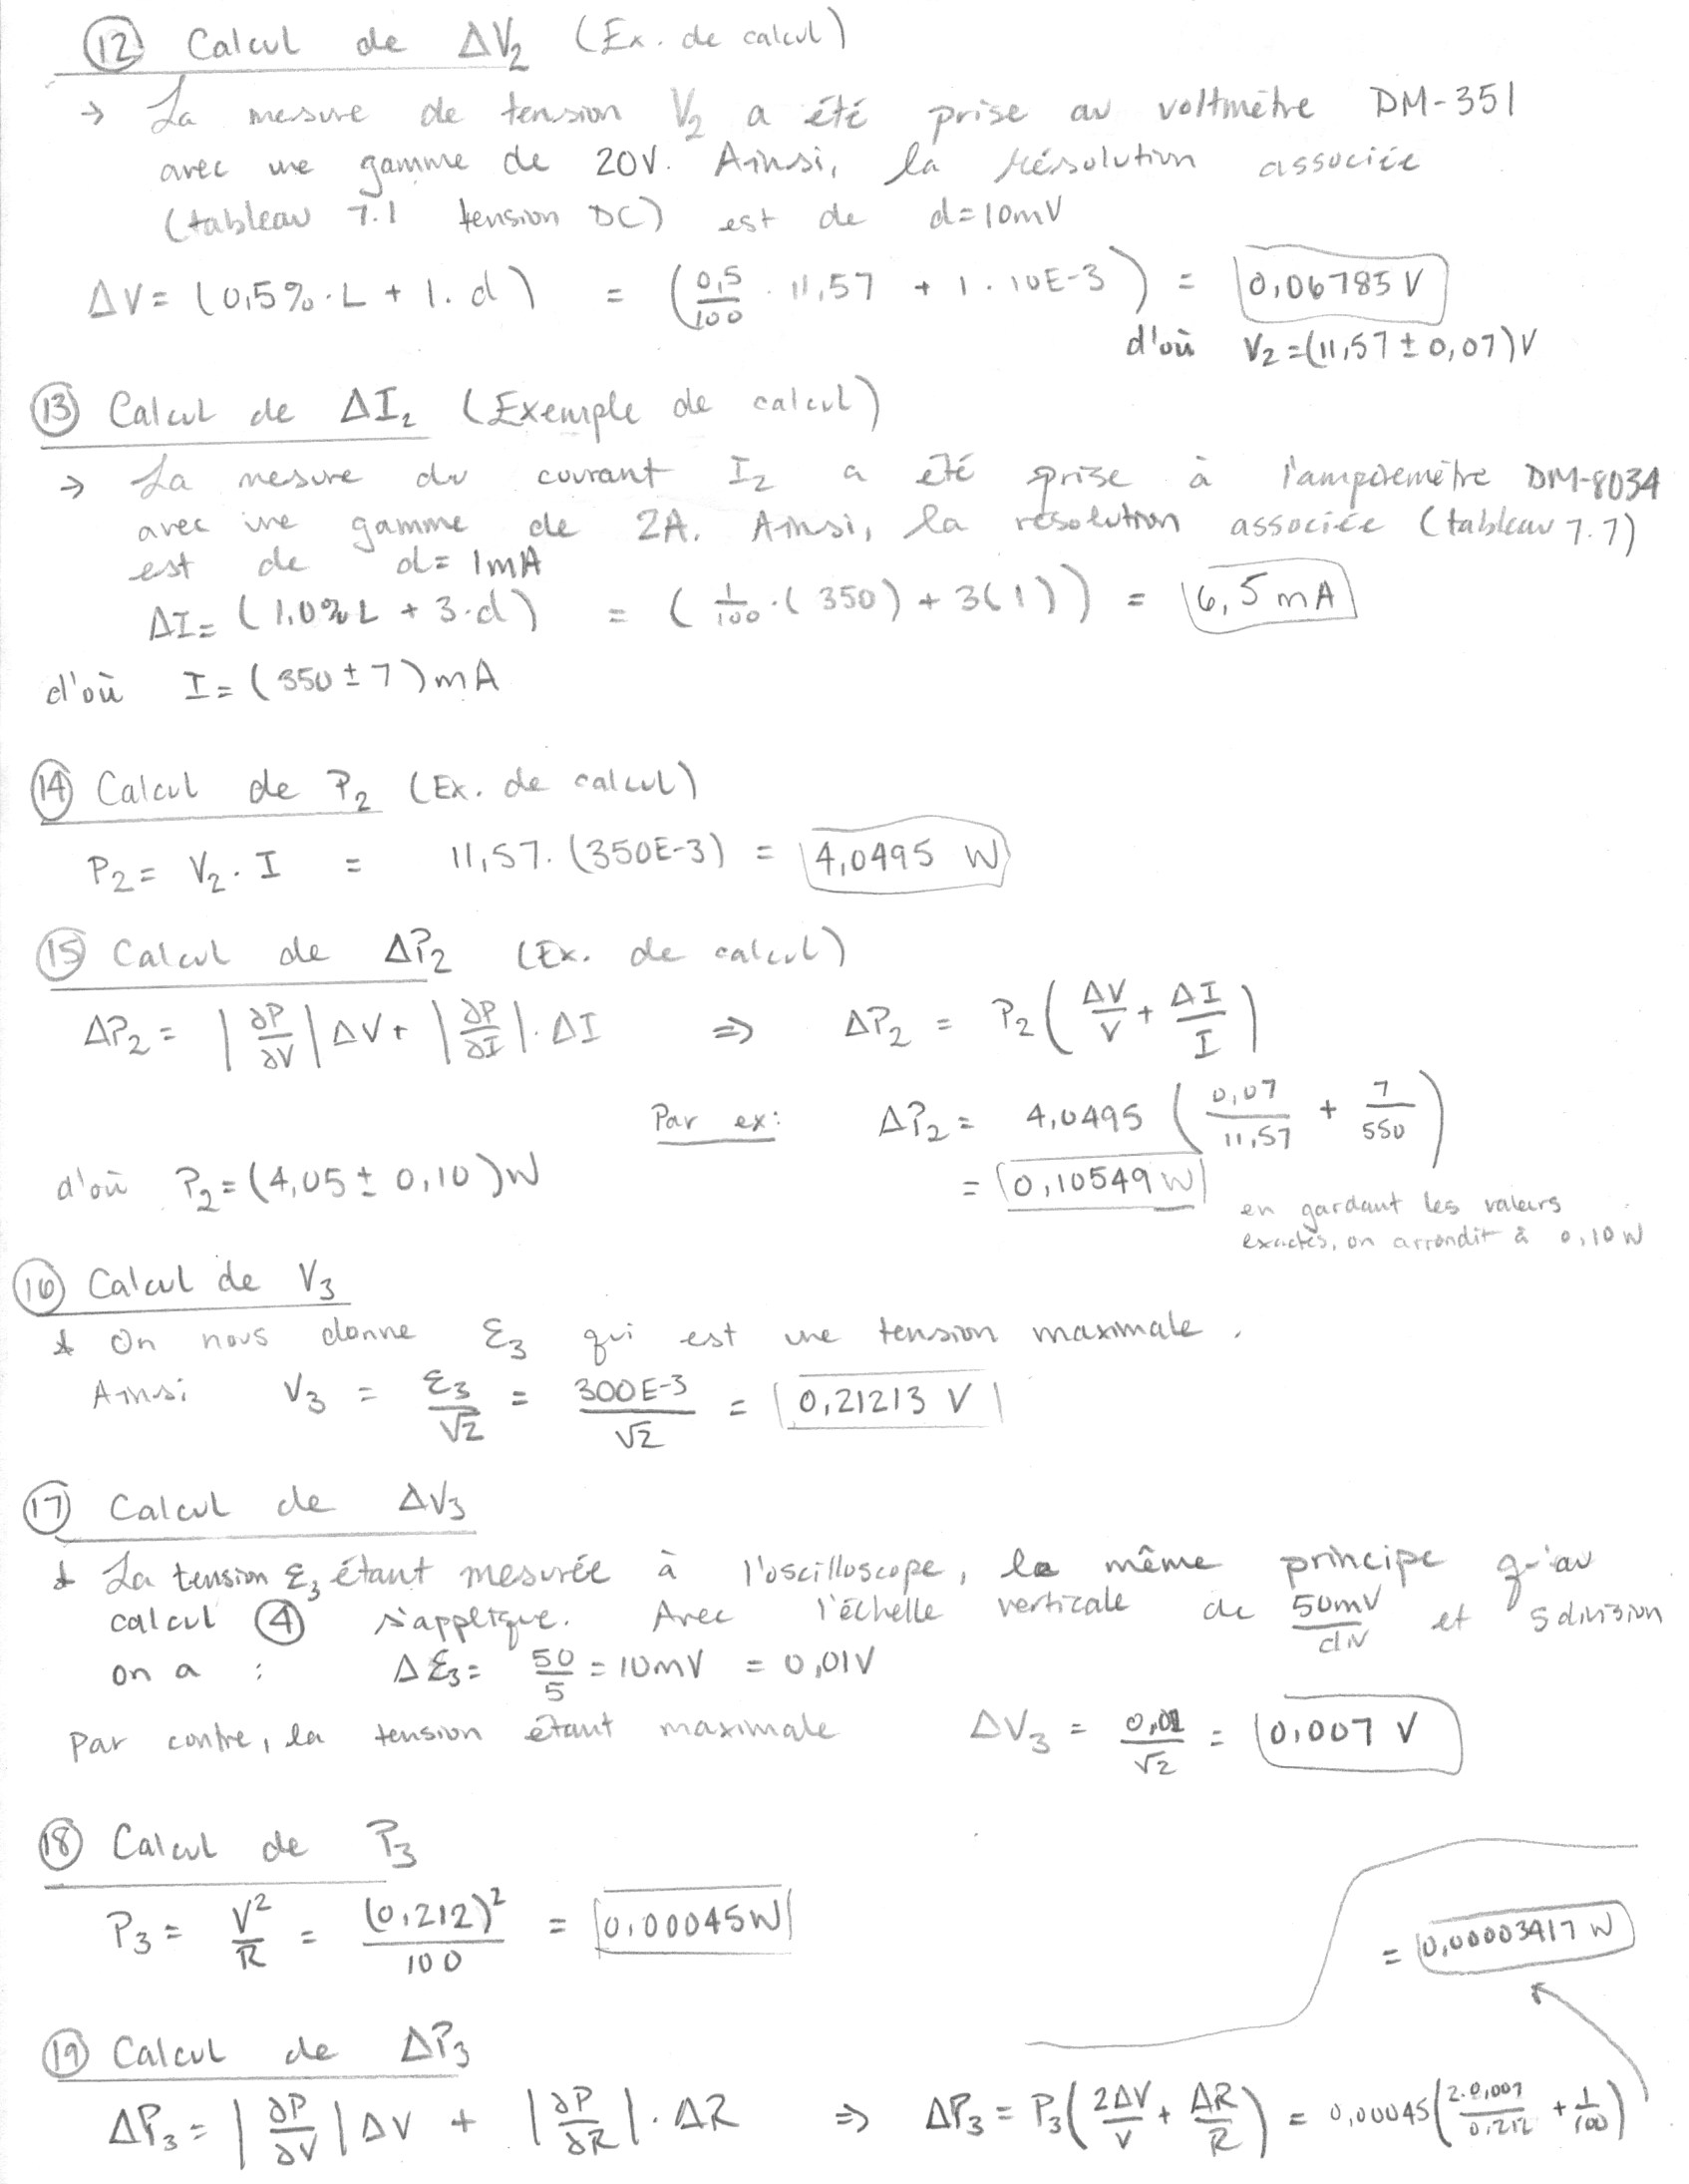 (12) Calcul de ΔV₂ (Ex. de calcul)
→ La mesure de tension V₂ a été prise au voltmètre DM-351
avec une gamme de 20V. Ainsi, la résolution associée
(tableau 7.1 tension DC) est de d=10mV
ΔV = (0,5%·L + 1·d) = (0,5/100 · 11,57 + 1·10E-3) = 0,06785 V
d'où V₂=(11,57 ± 0,07)V
(13) Calcul de ΔI₂ (Exemple de calcul)
→ La mesure du courant I₂ a été prise à l'ampèremètre DM-8034
avec une gamme de 2A. Ainsi, la résolution associée (tableau 7.7)
est de d= 1mA
ΔI= (1,0%L + 3·d) = (1/100·(350) + 3(1)) = 6,5 mA
d'où I=(350 ± 7)mA
(14) Calcul de P₂ (Ex. de calcul)
P₂= V₂·I = 11,57·(350E-3) = 4,0495 W
(15) Calcul de ΔP₂ (Ex. de calcul)
ΔP₂ = |∂P/∂V|ΔV + |∂P/∂I|·ΔI ⇒ ΔP₂ = P₂(ΔV/V + ΔI/I)
Par ex: ΔP₂ = 4,0495 (0,07/11,57 + 7/350)
d'où P₂=(4,05 ± 0,10)W = 0,10549 W
en gardant les valeurs
exactes, on arrondit à 0,10 W
(16) Calcul de V₃
* On nous donne Ɛ₃ qui est une tension maximale.
Ainsi V₃ = Ɛ₃/√2 = 300E-3/√2 = 0,21213 V
(17) Calcul de ΔV₃
* La tension Ɛ₃ étant mesurée à l'oscilloscope, le même principe qu'au
calcul (4) s'applique. Avec l'échelle verticale de 50mV/div et 5 division
on a : ΔƐ₃= 50/5 = 10mV = 0,01V
Par contre, la tension étant maximale ΔV₃ = 0,01/√2 = 0,007 V
(18) Calcul de P₃
P₃= V²/R = (0,212)²/100 = 0,00045W
= 0,00003417 W
(19) Calcul de ΔP₃
ΔP₃= |∂P/∂V|ΔV + |∂P/∂R|·ΔR ⇒ ΔP₃ = P₃(2ΔV/V + ΔR/R) = 0,00045(2·0,007/0,212 + 1/100)